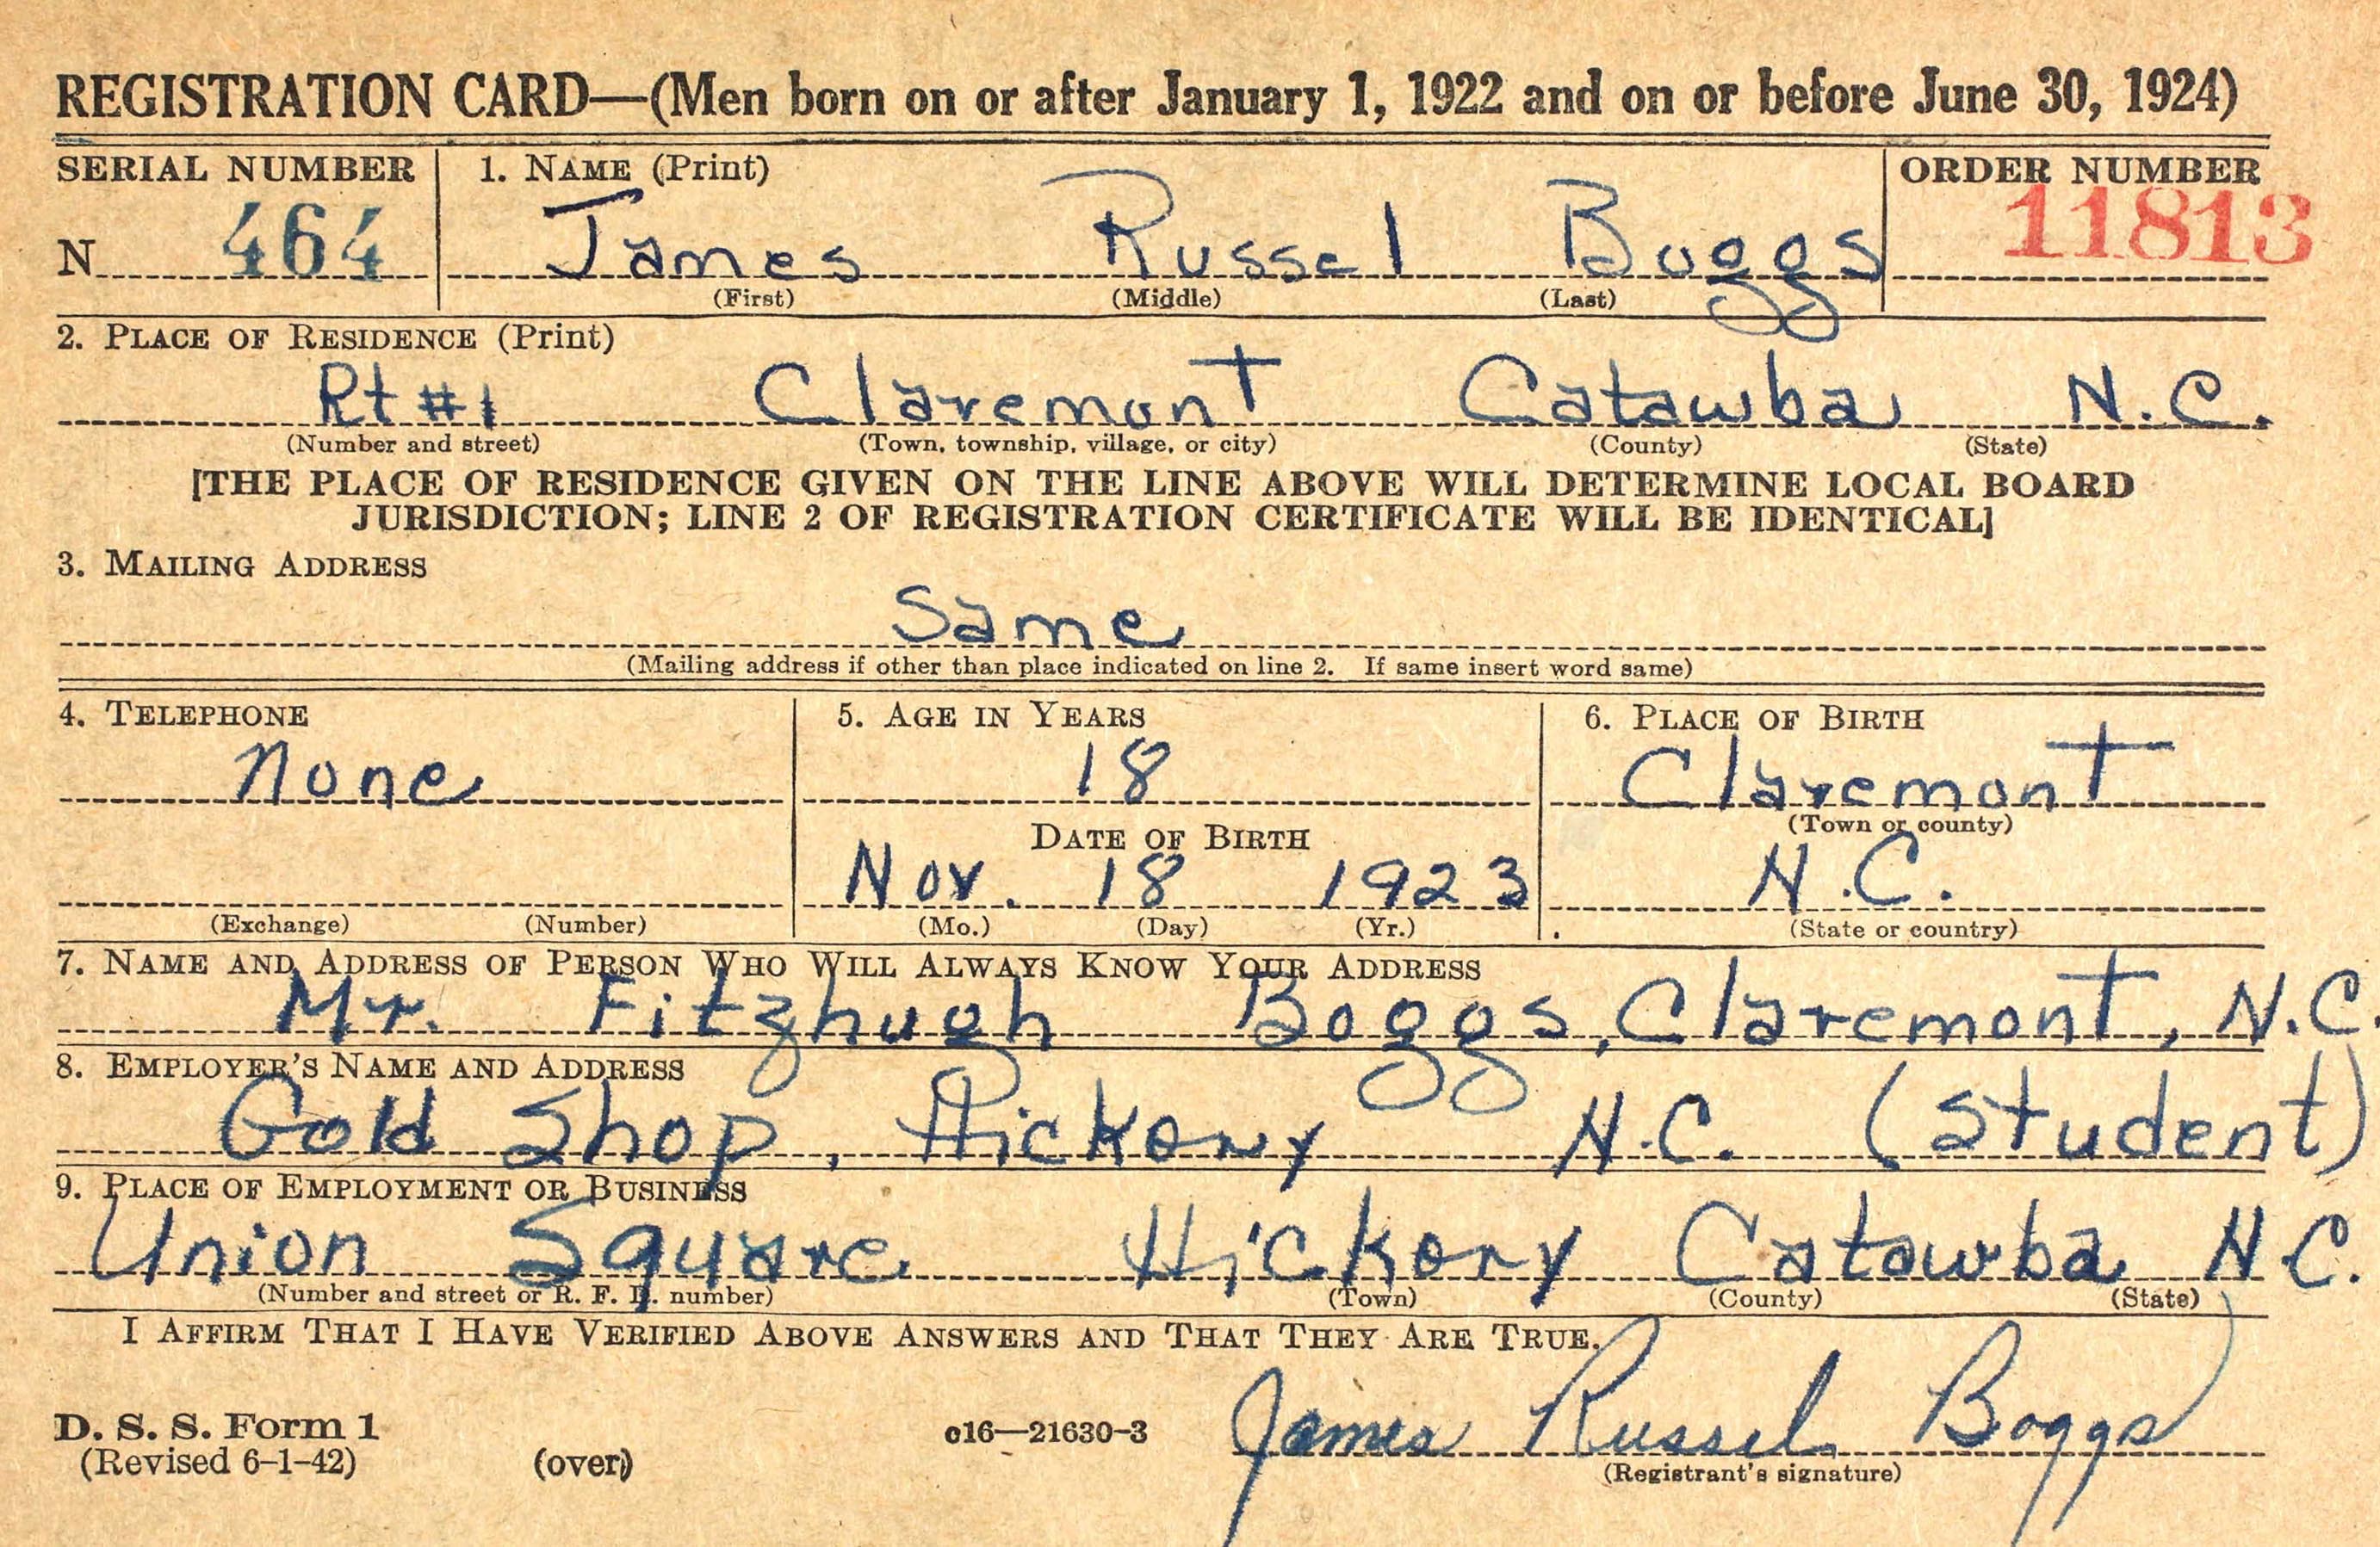 REGISTRATION CARD—(Men born on or after January 1, 1922 and on or before June 30, 1924)
SERIAL NUMBER 1. NAME (Print) ORDER NUMBER
N 464 James Russel Boggs 11813
(First) (Middle) (Last)
2. PLACE OF RESIDENCE (Print)
Rt #1 Claremont Catawba N.C.
(Number and street) (Town, township, village, or city) (County) (State)
[THE PLACE OF RESIDENCE GIVEN ON THE LINE ABOVE WILL DETERMINE LOCAL BOARD
JURISDICTION; LINE 2 OF REGISTRATION CERTIFICATE WILL BE IDENTICAL]
3. MAILING ADDRESS
Same
(Mailing address if other than place indicated on line 2. If same insert word same)
4. TELEPHONE 5. AGE IN YEARS 6. PLACE OF BIRTH
None 18 Claremont
(Town or county)
DATE OF BIRTH
Nov. 18 1923 N.C.
(Exchange) (Number) (Mo.) (Day) (Yr.) (State or country)
7. NAME AND ADDRESS OF PERSON WHO WILL ALWAYS KNOW YOUR ADDRESS
Mr. Fitzhugh Boggs, Claremont, N.C.
8. EMPLOYER'S NAME AND ADDRESS
Gold Shop, Hickory N.C. (Student)
9. PLACE OF EMPLOYMENT OR BUSINESS
Union Square Hickory Catawba N.C.
(Number and street or R. F. D. number) (Town) (County) (State)
I AFFIRM THAT I HAVE VERIFIED ABOVE ANSWERS AND THAT THEY ARE TRUE.
James Russel Boggs
D. S. S. Form 1 c16—21630-3
(Revised 6-1-42) (over) (Registrant's signature)